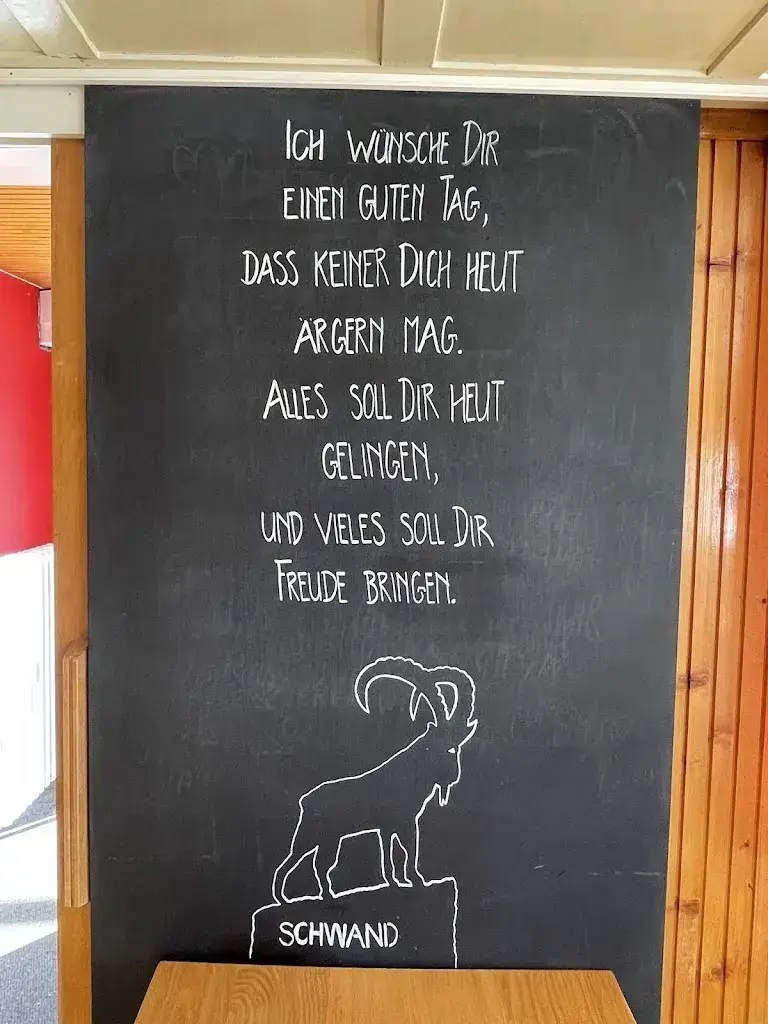 ICH WÜNSCHE DIR
EINEN GUTEN TAG,
DASS KEINER DICH HEUT
ÄRGERN MAG.
ALLES SOLL DIR HEUT
GELINGEN,
UND VIELES SOLL DIR
FREUDE BRINGEN.
SCHWAND